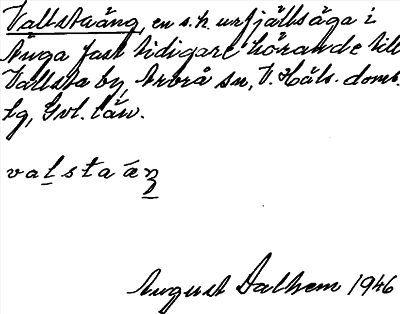 Vallstaäng, en s.k. urfjällsäga i
Änga fast tidigare hörande till
Vallsta by, Arbrå sn, V. Häls. doms.
tg, Gvl. län.
valstaäŋ
August Dalhem 1946